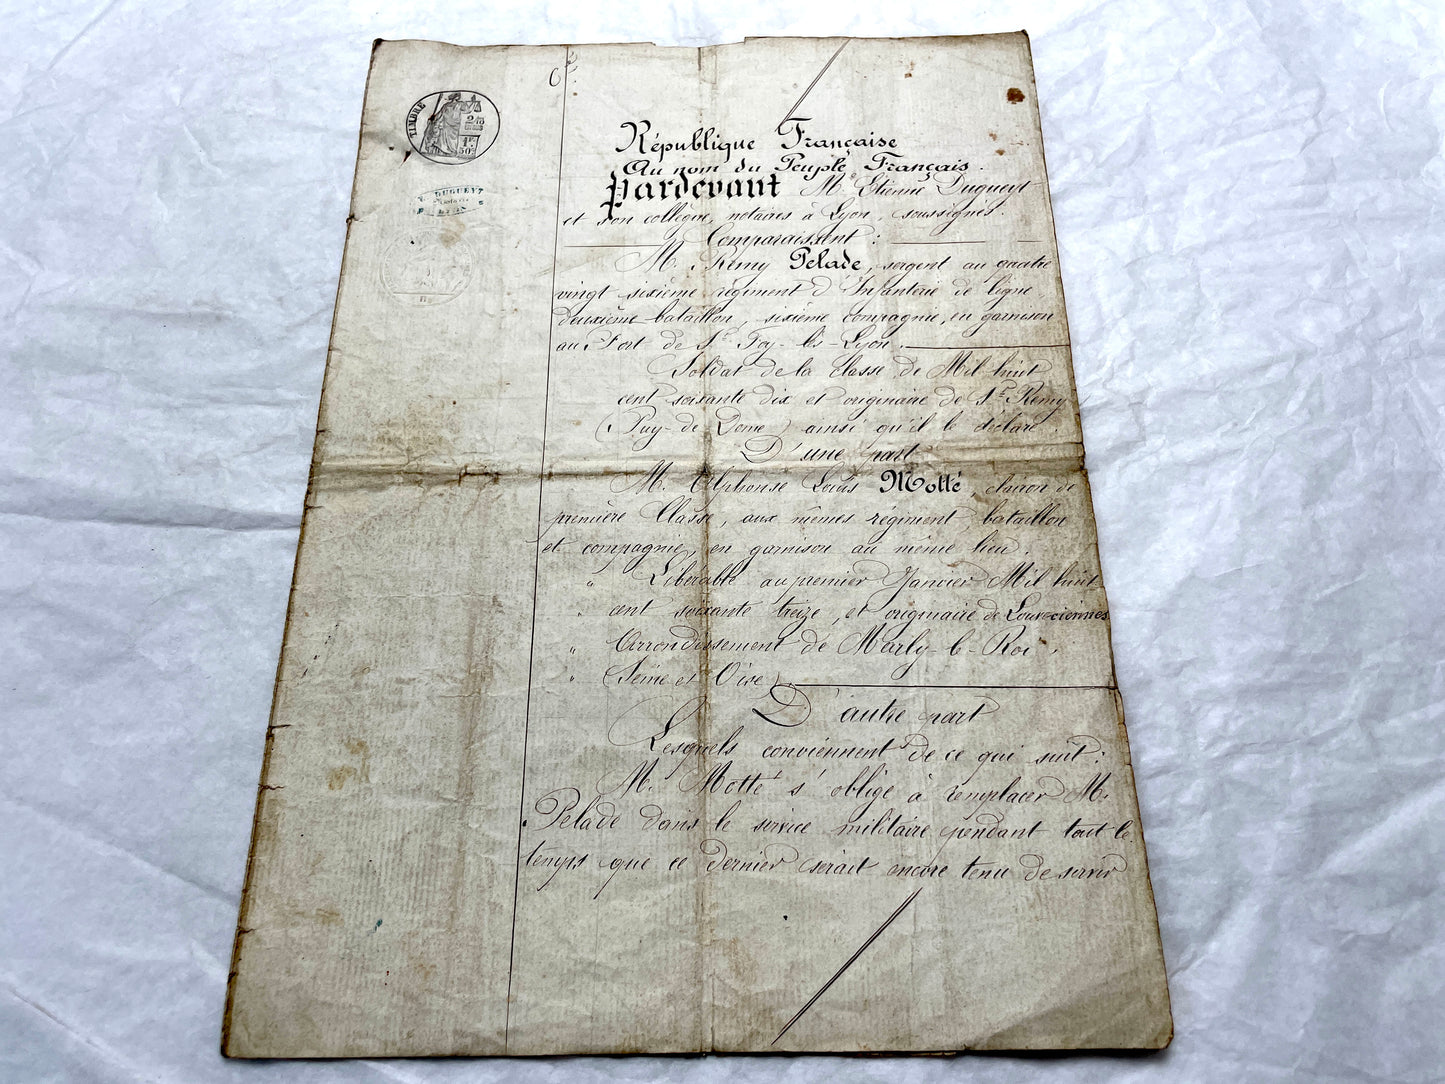 TIMBRE
2/10
EN SUS
1F.
50C.
E. DUGUEYT
Notaire
LYON
République Française
Au nom du Peuple Français.
Pardevant Me. Etienne Dugueyt
et son collègue, notaires à Lyon, soussignés.
Comparaissent :
M. Remy Pelade, sergent au quatre
vingt sixième régiment d'Infanterie de ligne,
deuxième bataillon, sixième compagnie, en garnison
au Fort de Ste Foy-lès-Lyon.
Soldat de la classe de Mil huit
cent soixante dix et originaire de St Remy
(Puy-de Dome) ainsi qu'il le déclare.
D'une part
M. Alphonse Louis Motté, clairon de
première Classe, aux mêmes régiment, bataillon
et compagnie, en garnison au même lieu.
" Libérable au premier Janvier Mil huit
" cent soixante treize, et originaire de Louveciennes
" Arrondissement de Marly-le-Roi,
" (Seine et Oise)
D'autre part
Lesquels conviennent de ce qui suit :
M. Motté s'oblige à remplacer M.
Pelade dans le service militaire pendant tout le
temps que ce dernier serait encore tenu de servir